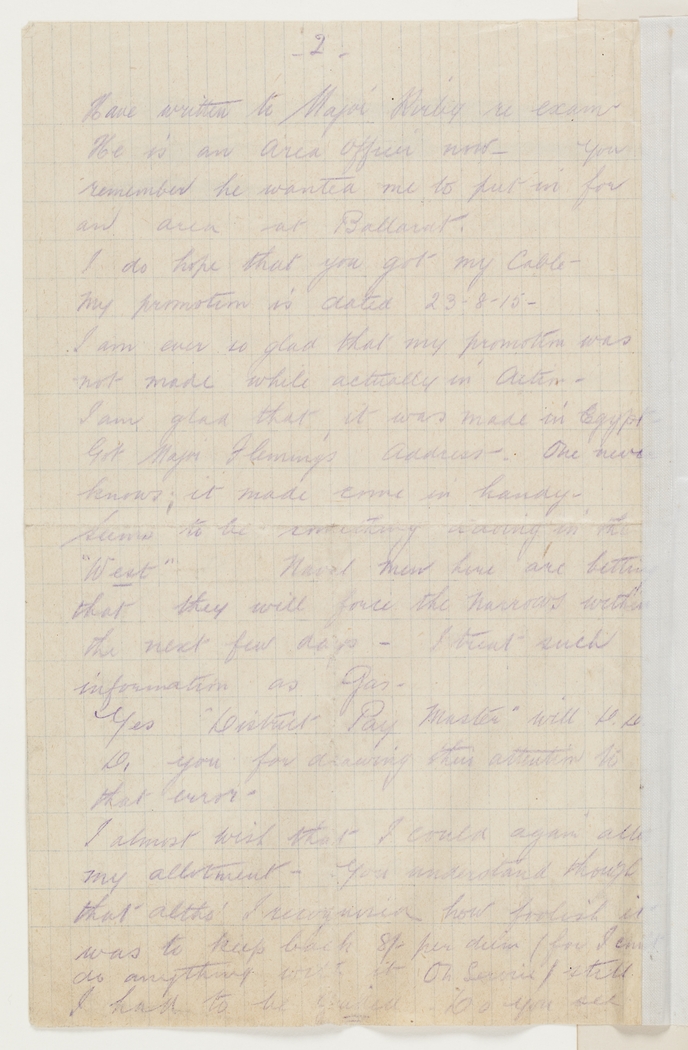 - 2 -
Have written to Major Kirby re exam
He is an Area Officer now - You
remember he wanted me to put in for
an area at Ballarat.
I do hope that you got my Cable -
My promotion is dated 23-8-15 -
I am ever so glad that my promotion was
not made while actually in Action -
I am glad that it was made in Egypt
Got Major Fleming's Address - . One never
knows; it made come in handy -
Seems to be something in the
"West" Naval men here are betting
that they will force the Narrows within
the next few days - I treat such
information as Gas -
Yes "District Pay Master" will
you for drawing their attention to
that error -
I almost wish that I could again
my allotment - You understand though
that altho' I recognised how foolish it
was to keep back 8/- per diem (for I can't
do anything with it On Service) still
I had to be Do you see